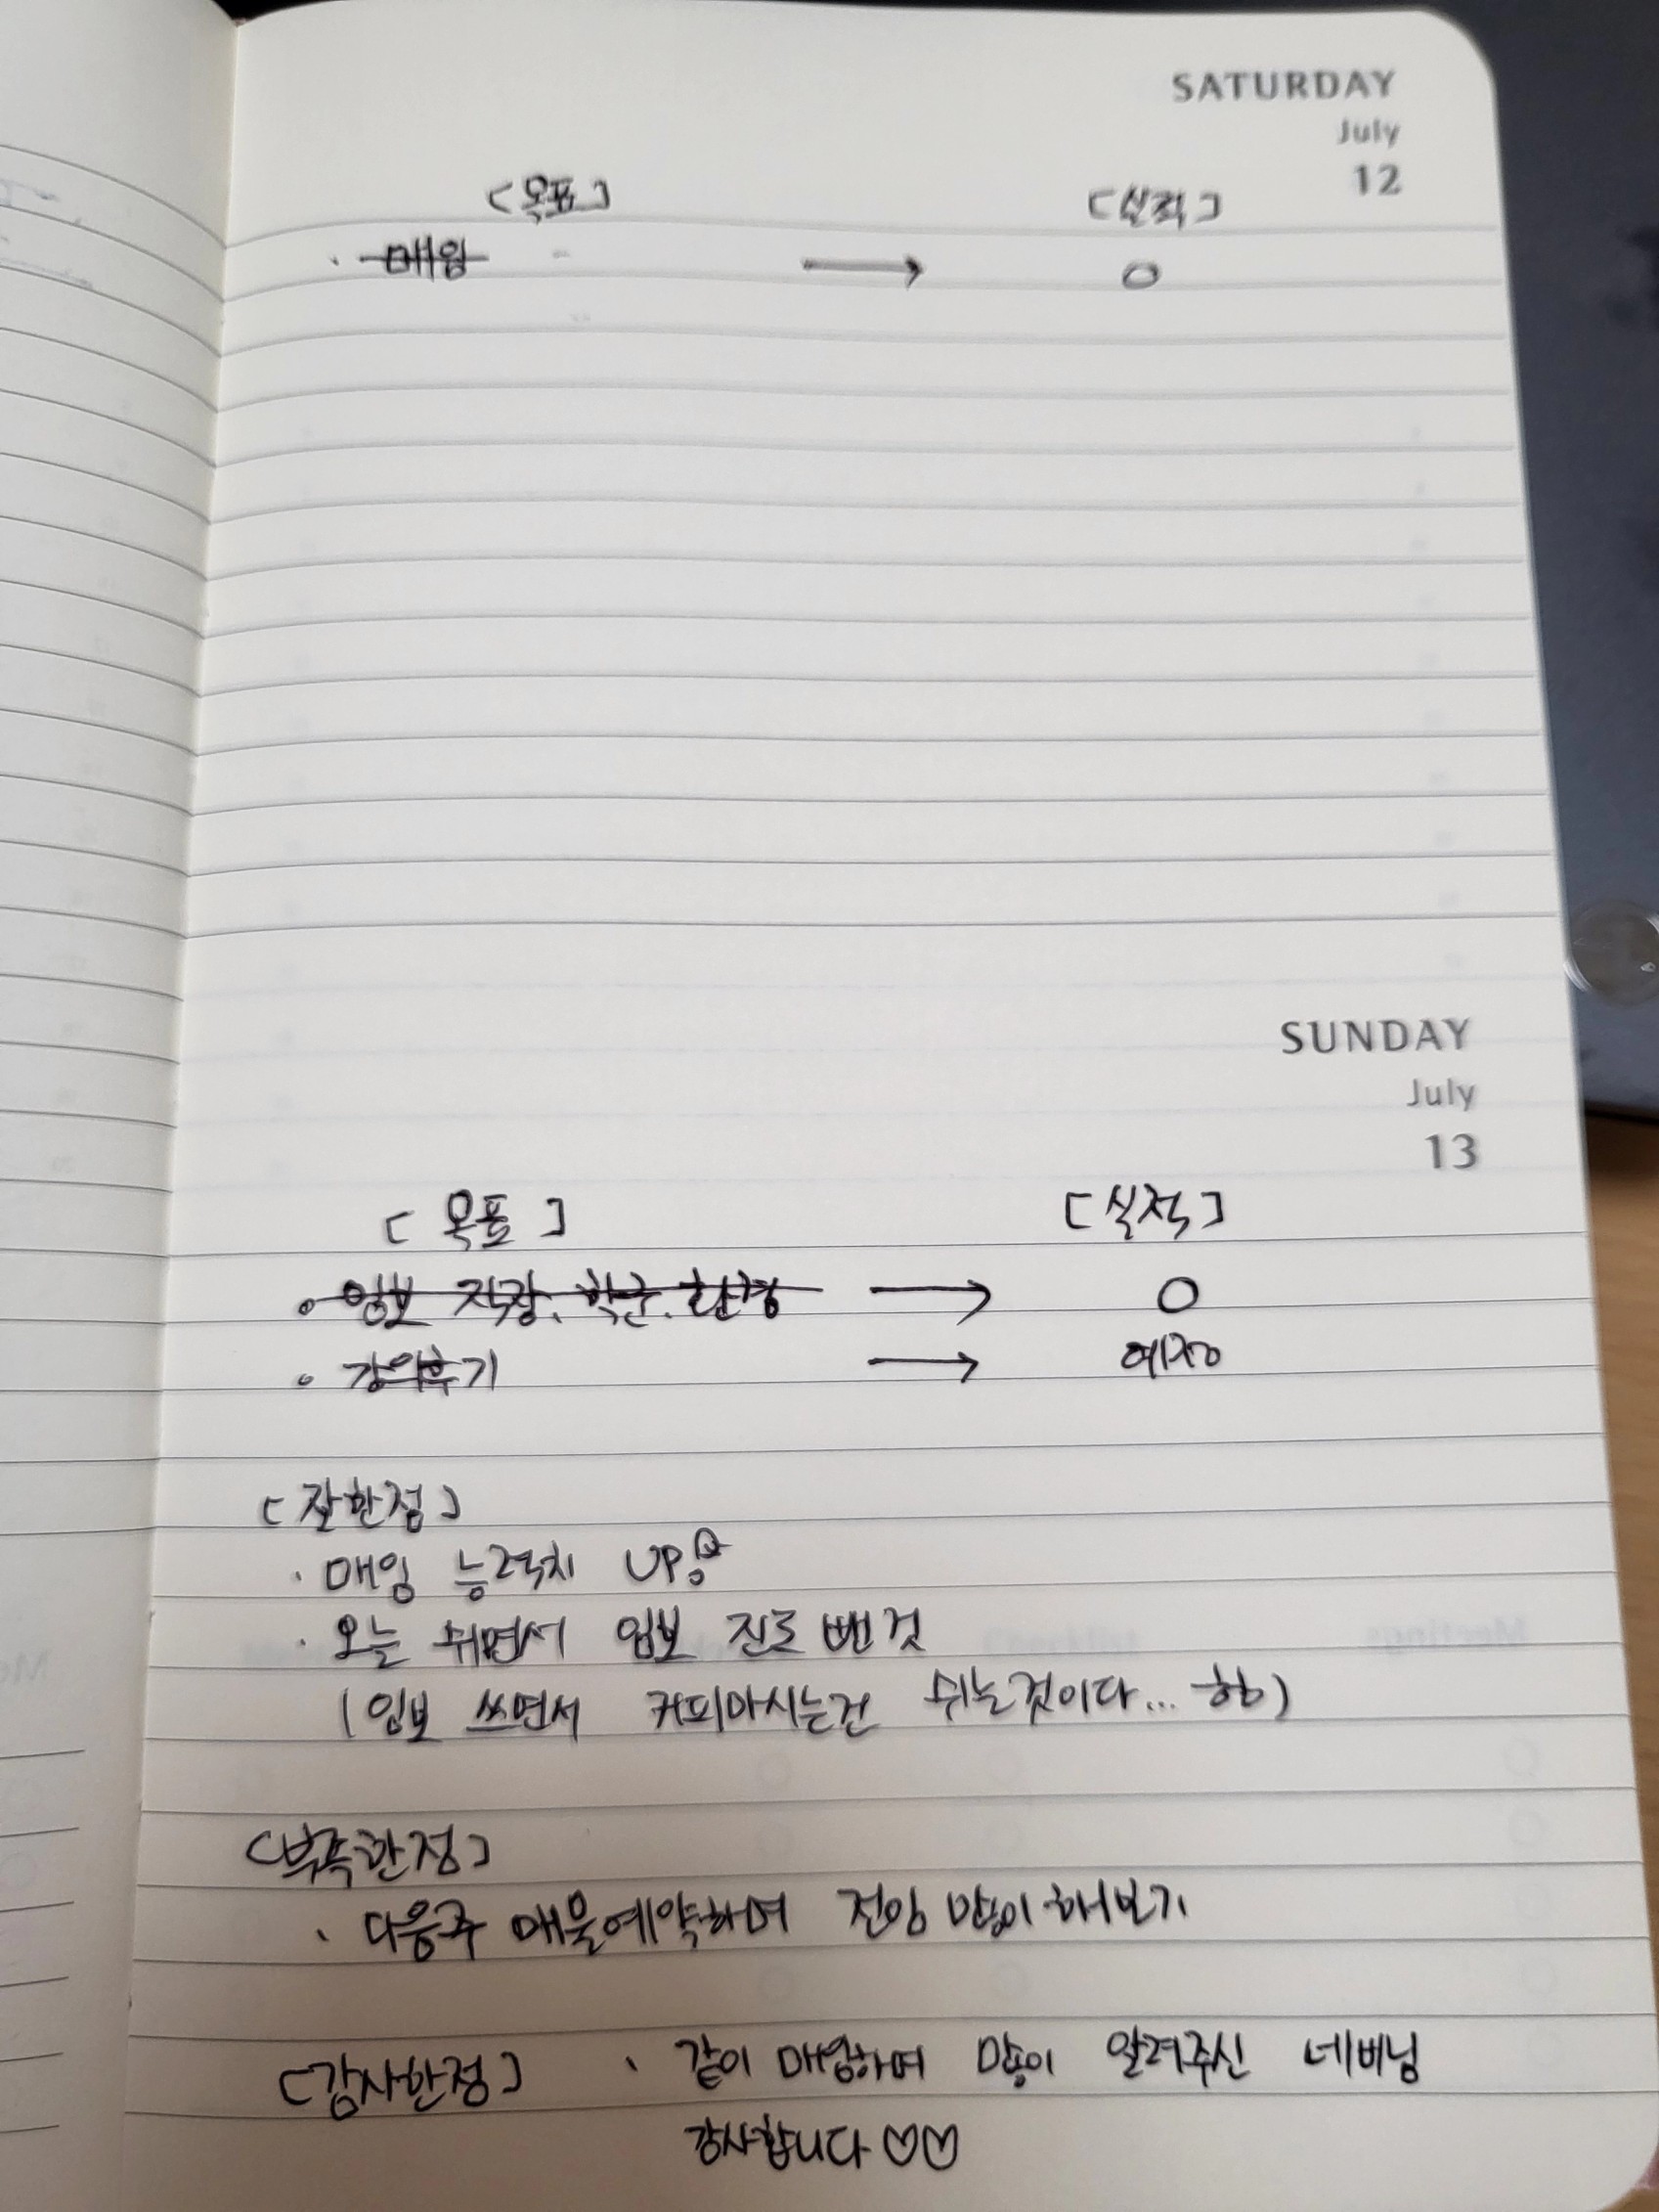 SATURDAY
July
12
[목표] [실적]
· 매임 → O
SUNDAY
July
13
[목표] [실적]
· 임보 직장, 학군, 환경 → O
· 강의후기 → 예정
[잘한점]
· 매임 능력치 UP
· 오늘 쉬면서 임보 진도 뺀 것
(임보 쓰면서 커피마시는건 쉬는것이다...)
[부족한점]
· 다음주 매물예약하며 전임 많이 해보기
[감사한점] · 같이 매임하며 많이 알려주신 네버님
감사합니다 ♡♡